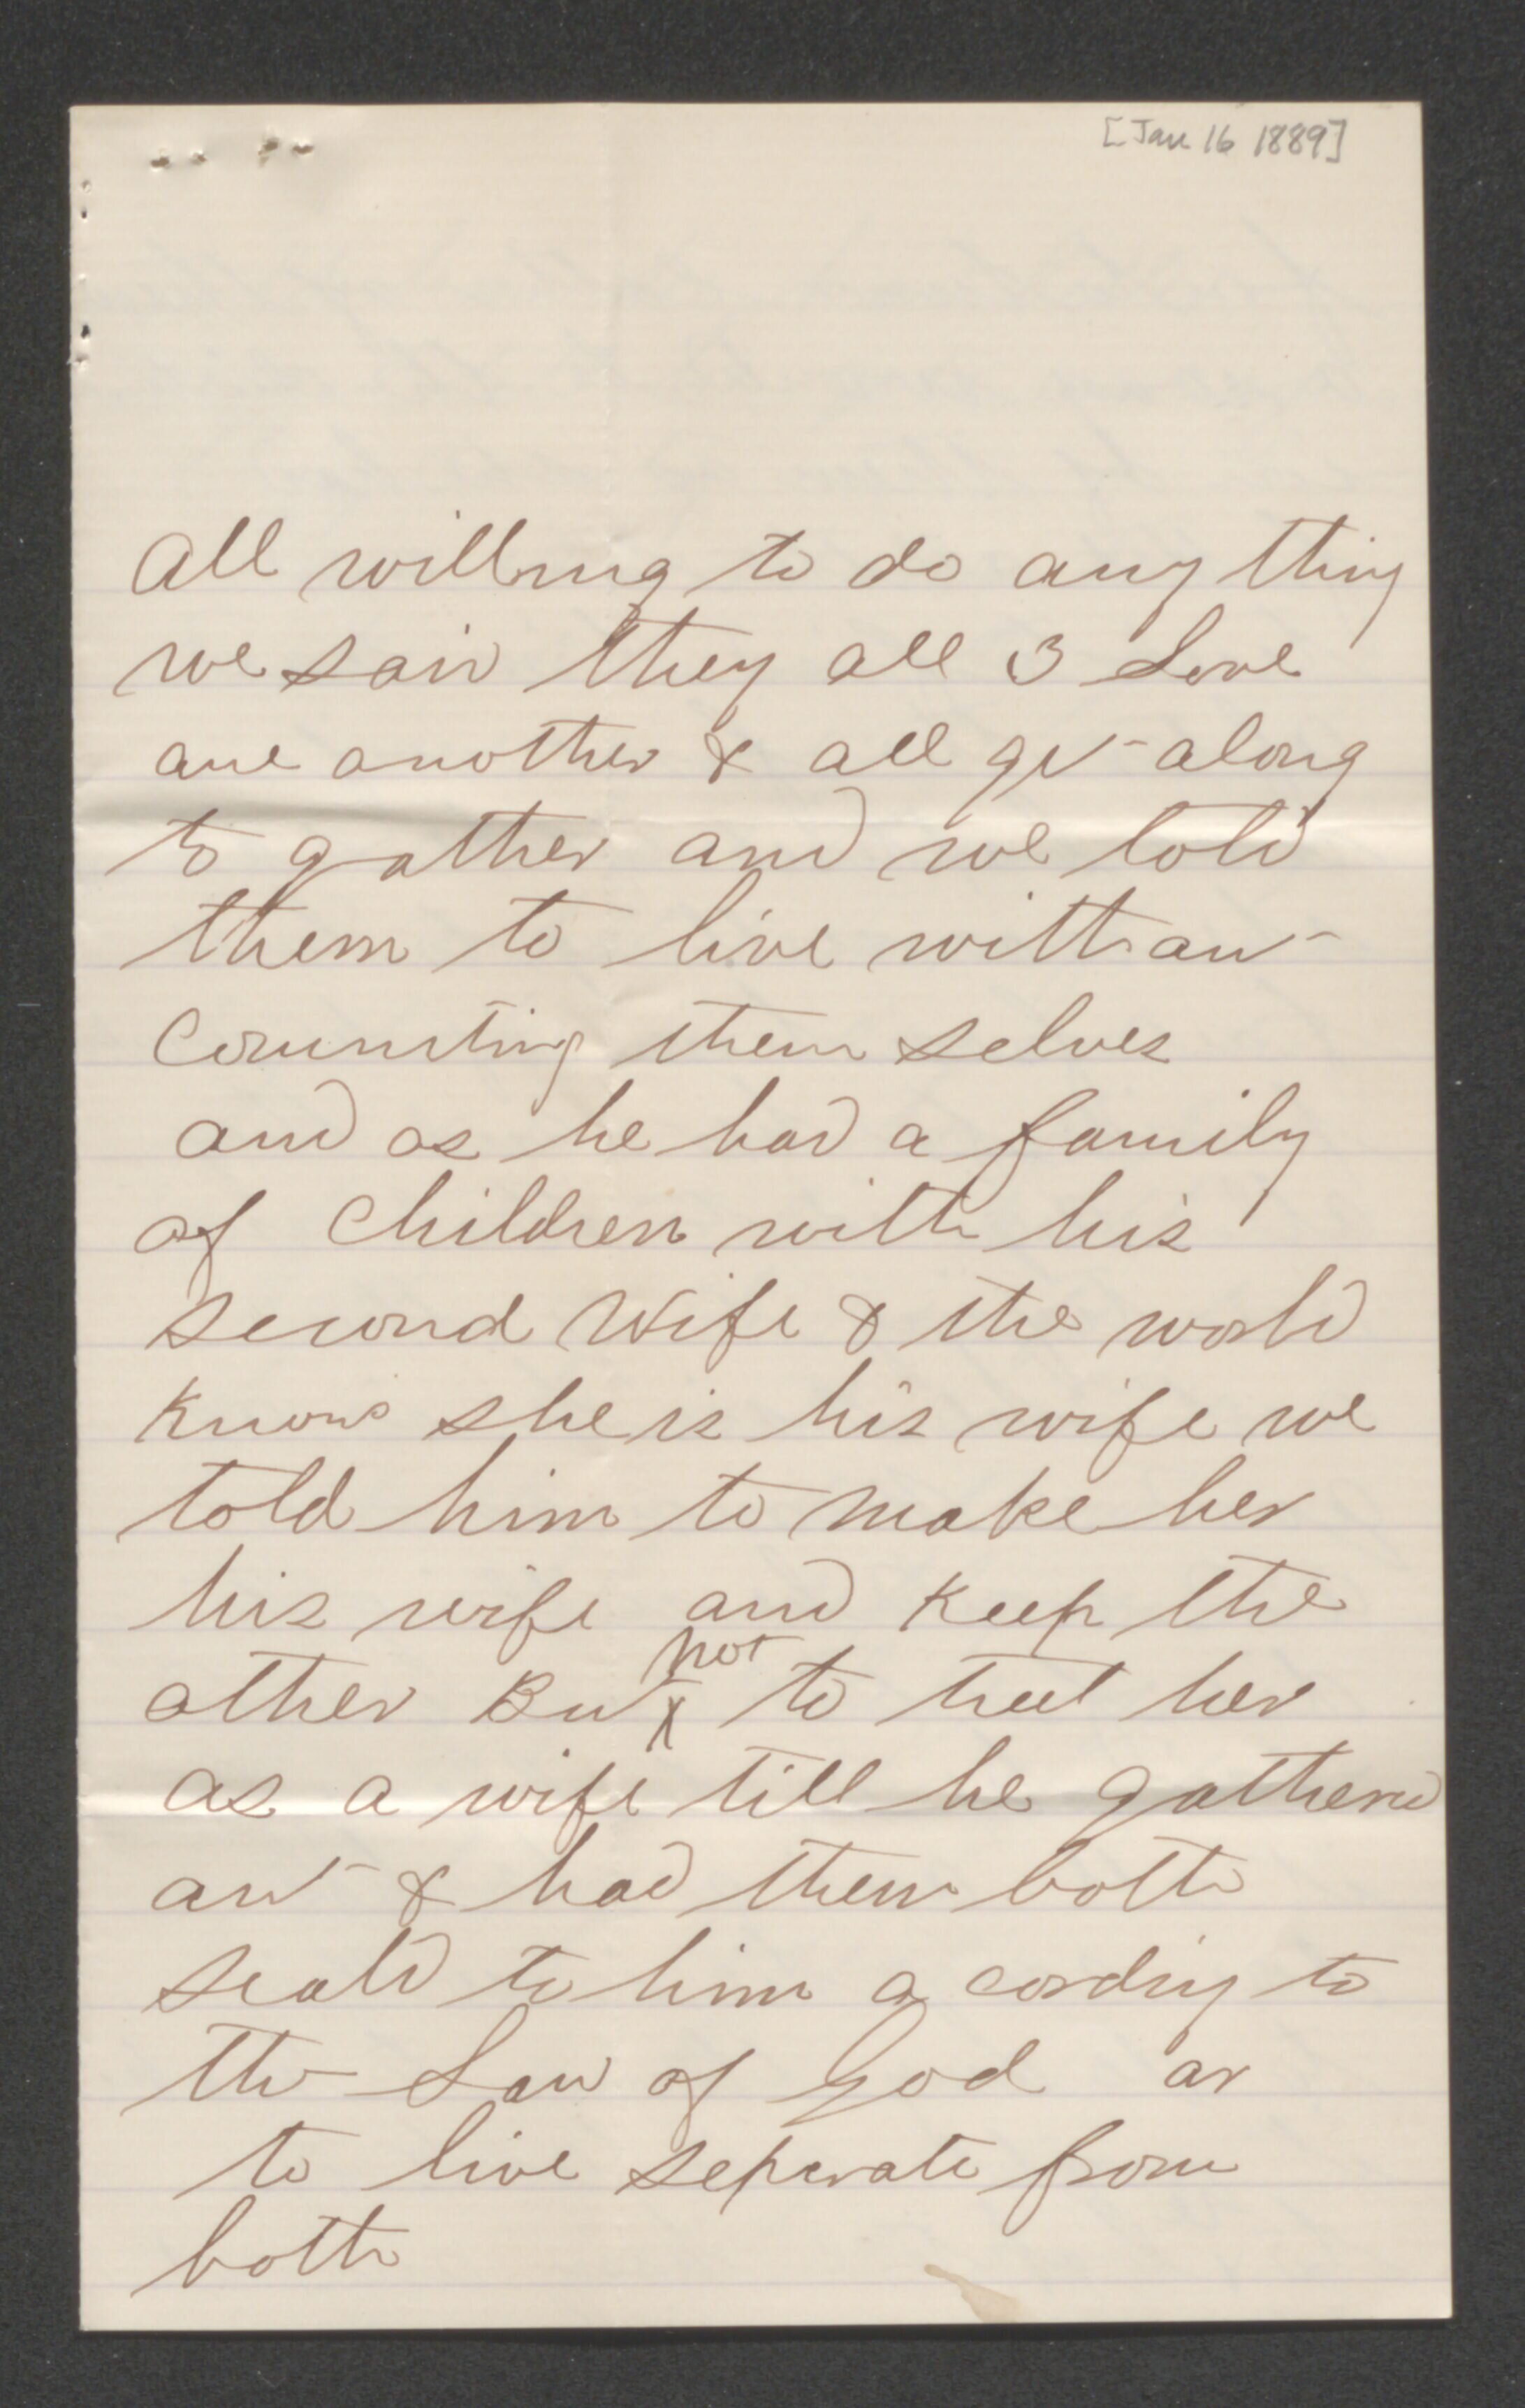 [Jan 16 1889]
All willing to do any thing
we said they all 3 Love
one another & all get along
to gather and we told
them to live without
Commiting them selves
and as he had a family
of Children with his
second Wife & the world
knows she is his wife we
told him to make her
his wife and keep the
other But not to treet her
as a wife till he gathered
out & had them both
seald to him a cording to
the Law of God or
to live seperate from
both